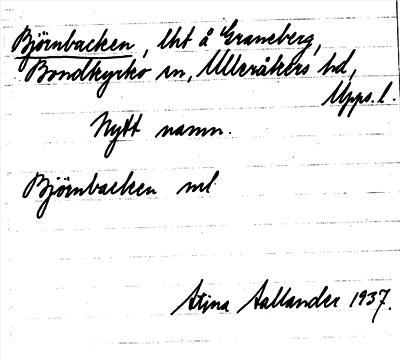 Björnbacken, lht å Graneberg,
Bondkyrko sn, Ulleråkers hd,
Upps. l.
Nytt namn.
Björnbacken ml
Stina Aallander 1937.